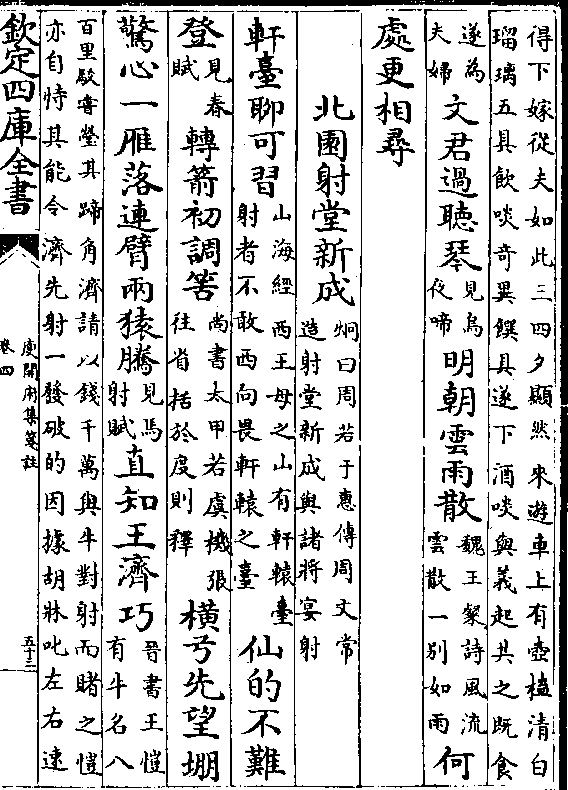 得下嫁從夫如此三四夕顯然來遊車上有壺榼清白
瑠璃五具飲啖奇異饌具遂下酒啖與義起共之既食
遂為夫婦文君過聽琴見烏夜啼明朝雲雨散魏王粲詩風流雲散一別如雨何
處更相尋
北園射堂新成炯曰周若于惠傳周文常造射堂新成與諸將宴射
軒臺聊可習山海經西王母之山有軒轅臺射者不敢西向畏軒轅之臺仙的不難
登見春賦轉箭初調筈尚書太甲若虞機張往省括於度則釋橫弓先望堋
驚心一雁落連臂兩猿騰見馬射賦直知王濟巧晉書王愷有牛名八
百里駮嘗瑩其蹄角濟請以錢千萬與牛對射而賭之愷
亦自恃其能令濟先射一發破的因據胡牀叱左右速
欽定四庫全書
庾開府集箋註
卷四
五十三